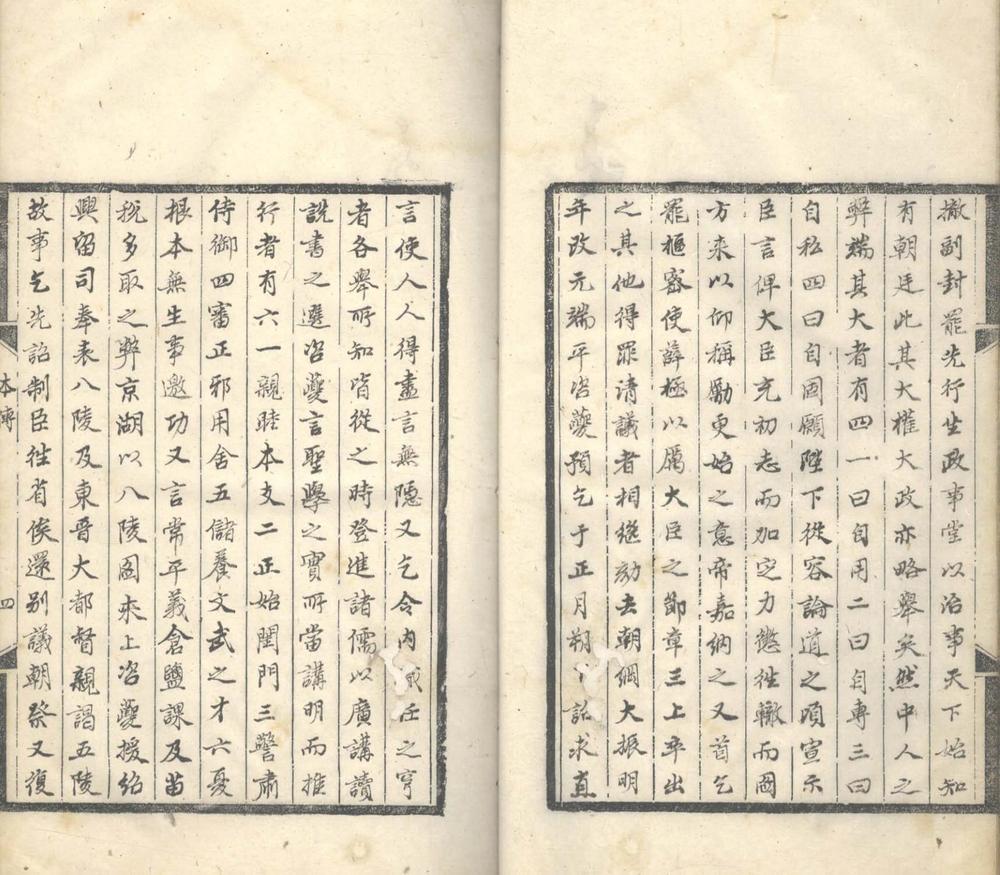 撤副封罷先行坐政事堂以治事天下始知
有朝廷此其大權大政亦略舉矣然中人之
弊端其大者有四一曰自用二曰自專三曰
自私四曰自固願陛下從容論道之頃宣示
臣言俾大臣充初志而加定力懲徃轍而圖
方來以仰稱勵更始之意帝嘉納之又首乞
罷樞密使薛極以厲大臣之節章三上卒出
之其他得罪清議者相繼劾去朝綱大振明
年改元端平咨夔預乞于正月朔詔求直
言使人人得盡言無隱又乞令内任之官
者各舉所知皆從之時登進諸儒以廣講讀
說書之選咨夔言聖學之實所當講明而推
行者有六一親睦本支二正始閨門三警肅
侍御四審正邪用舍五儲養文武之才六憂
根本無生事邀功又言常平義倉鹽課及苗
稅多取之弊京湖以八陵圖來上咨夔援紹
興留司奉表八陵及東晋大都督親謁五陵
故事乞先詔制臣徃省俟還别議朝祭又復
本傳
四